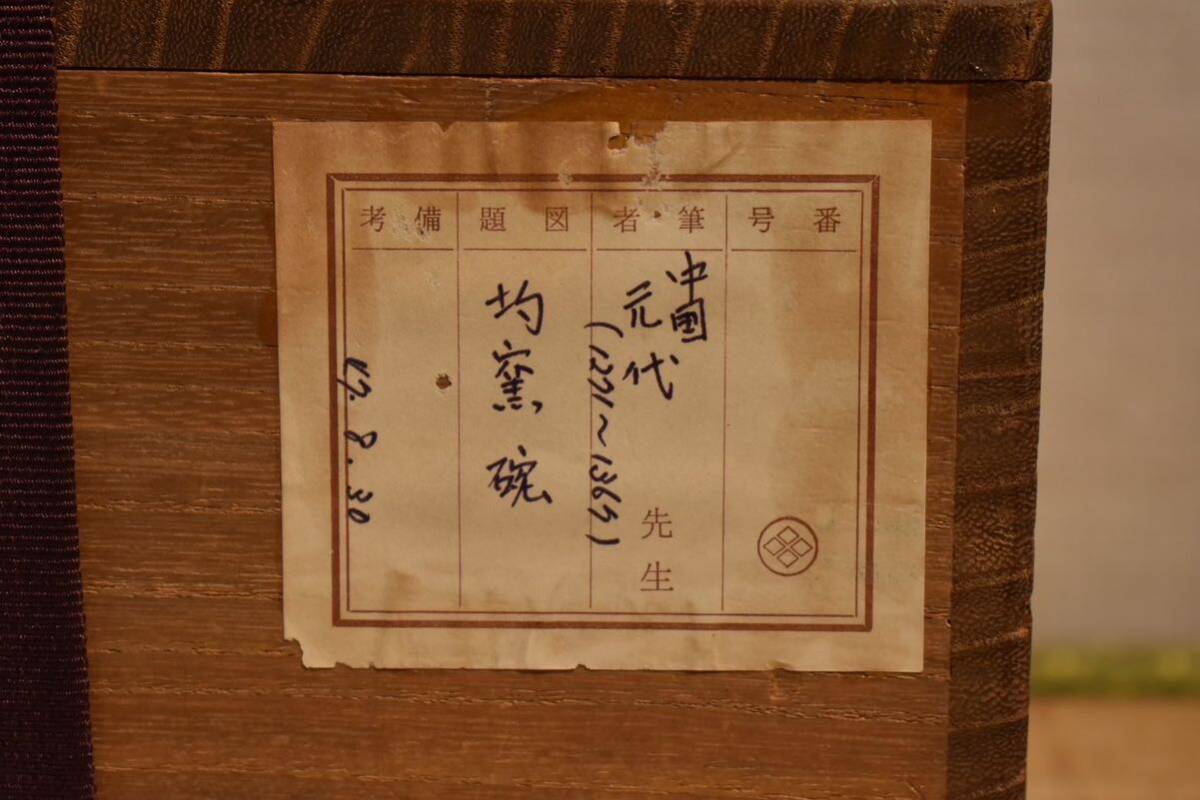 番号
筆者
中国
元代
(1271~1367)
先生
図題
均窯碗
備考
47.8.30